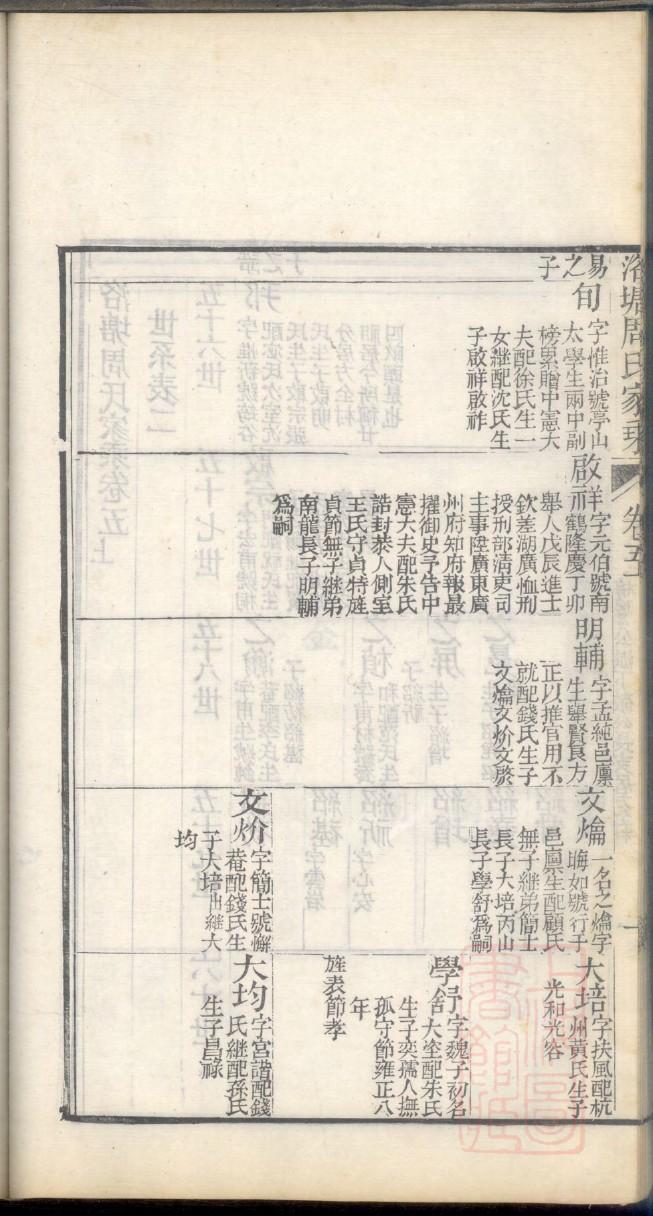 洛塘周氏家乘 卷五
易之子
旬
字惟治號亭山
太學生兩中副
榜累贈中憲大
夫配徐氏生一
女繼配沈氏生
子啟祥啟祚
啟祥
字元伯號南
鶴隆慶丁卯
舉人戊辰進士
欽差湖廣恤刑
授刑部清吏司
主事陞廣東廣
州府知府報最
擢御史予告中
憲大夫配朱氏
誥封恭人側室
王氏守貞特旌
貞節無子繼弟
南龍長子明輔
爲嗣
明輔
字孟純邑廪
生舉賢良方
正以推官用不
就配錢氏生子
文爚文炌文
文爚
一名之爚字
晦如號行于
邑廪生配顧氏
無子繼弟簡士
長子大培丙山
長子學舒爲嗣
文炌
字簡士號懈
菴配錢氏生
子大培出繼大
均
大培
字扶風配杭
州黃氏生子
光和光容
學舒
字魏子初名
大坙配朱氏
生子奕孺人撫
孤守節雍正八
年
旌表節孝
大均
字宮諧配錢
氏繼配孫氏
生子昌祿